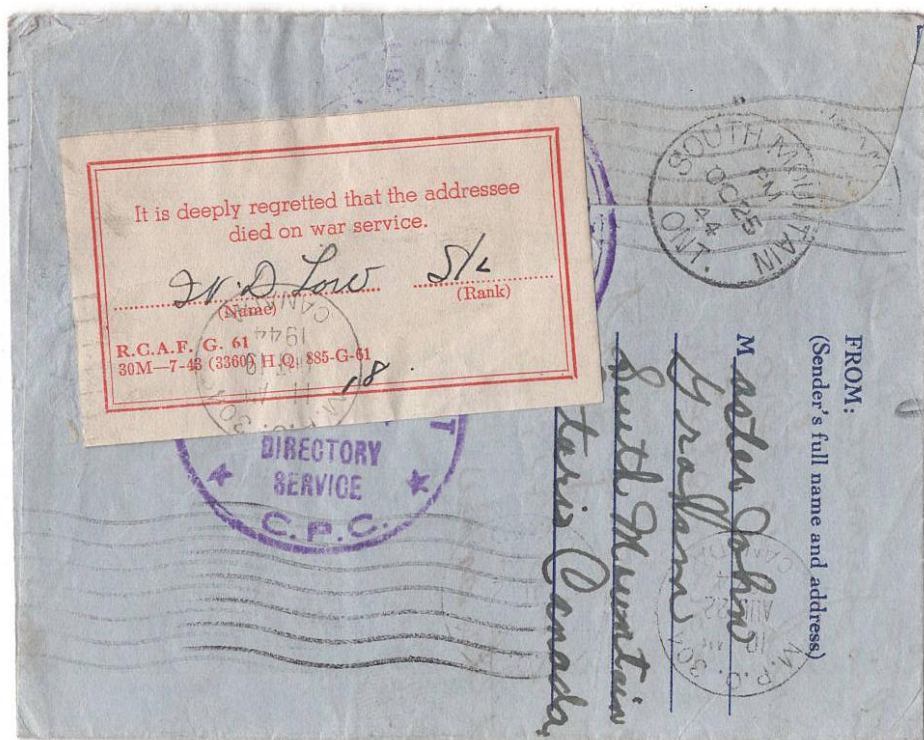 It is deeply regretted that the addressee
died on war service.
W. D Low S/L
(Name) (Rank)
R.C.A.F. G. 61
30M—7-43 (3360) H.Q. 885-G-61
18.
DIRECTORY
SERVICE
C.P.C.
SOUTH MOUNTAIN
PM
OC 25
44
ONT.
FROM:
(Sender's full name and address)
Master John
Graham
South Mountain
Ontario Canada,
M.P.O. 307
CANADA
1944
M.P.O. 307
CANADA